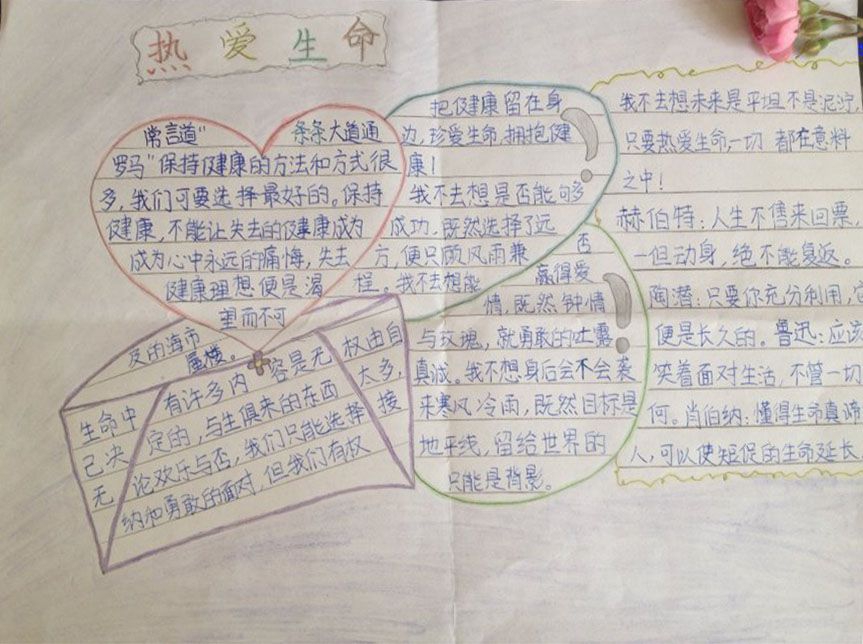 热爱生命
常言道"条条大道通
罗马"保持健康的方法和方式很
多,我们可要选择最好的。保持
健康,不能让失去的健康成为
成为心中永远的痛悔,失去
健康理想便是渴
望而不可
及的海市
蜃楼。
生命中有许多内容是无权由自
己决定的,与生俱来的东西太多,
无论欢乐与否,我们只能选择接
纳和勇敢的面对,但我们有权
把健康留在身
边,珍爱生命,拥抱健
康!
我不去想是否能句多
成功,既然选择了远
方,便只顾风雨兼
程。我不去想能否
赢得爱
情,既然钟情
与玫瑰,就勇敢的吐露
真诚。我不想身后会不会袭
来寒风冷雨,既然目标是
地平线,留给世界的
只能是背影。
我不去想未来是平坦不是泥泞,
只要热爱生命一切都在意料
之中!
赫伯特:人生不售来回票,
一但动身,绝不能复返。
陶潜:只要你充分利用,
便是长久的。鲁迅:应该
笑着面对生活,不管一切
何。肖伯纳:懂得生命真谛
人,可以使短促的生命延长